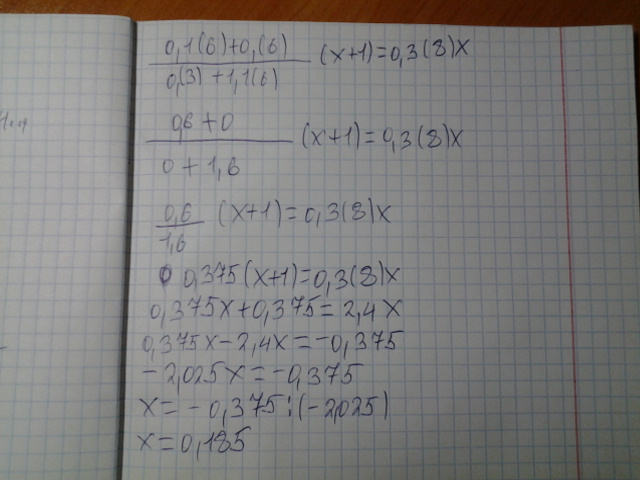 0,1(6)+0,(6)
(x+1)=0,3(8)x
0,(3)+1,1(6)
0,6+0
(x+1)=0,3(8)x
0+1,6
0,6
(x+1)=0,3(8)x
1,6
0,375(x+1)=0,3(8)x
0,375x+0,375=2,4x
0,375x-2,4x=-0,375
-2,025x=-0,375
x=-0,375:(-2,025)
x=0,185